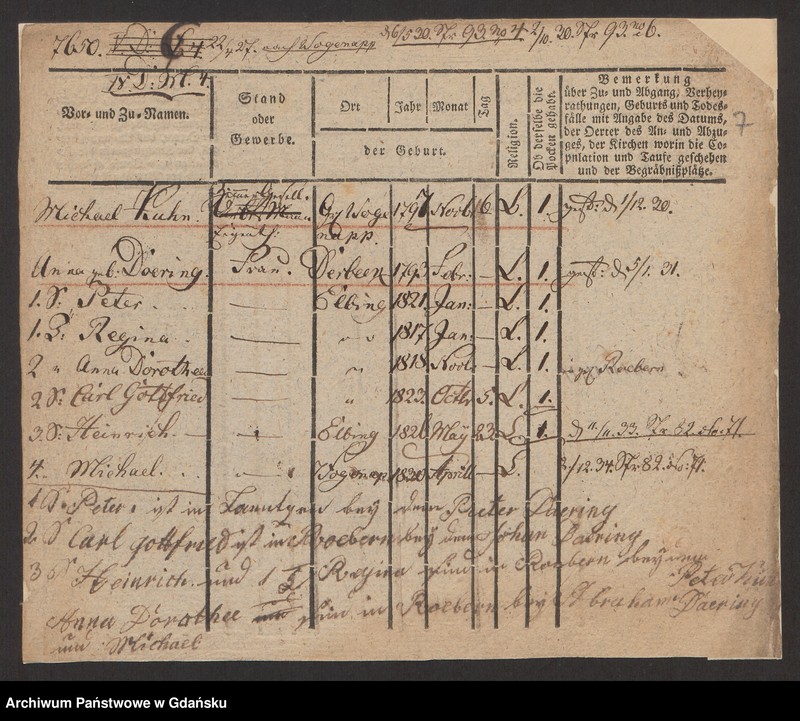 7650. V. D. 22/4 27. nach Wogenapp d 6/5 30. Str 93. no 4 2/10. 20. Str 93. no 6.
IV. D. Nr. 4.
7
Vor- und Zu-Namen. Stand oder Gewerbe. Ort Jahr Monat Tag der Geburt. Religion. Ob derselbe die Pocken gehabt.
Bemerkung
über Zu- und Abgang, Verhey-
rathungen, Geburts und Todes-
fälle mit Angabe des Datums,
der Oerter des An- und Abzu-
ges, der Kirchen worin die Co-
pulation und Taufe geschehen
und der Begräbnißplätze.
Michael Kuhn. 1797 Novb 16 L. 1. gest: d 1/12. 20.
Eigenth: napp.
Anna geb: Doering. Frau. Derbeck 1793 Febr. — L. 1. gest: d 5/1. 31.
1. S: Peter. — Elbing 1821. Jan: — L. 1.
1. T. Regina. — " 1817. Jan: — L. 1.
2 " Anna Dorothea — " 1818. Novb — L. 1. Roebern
2 S: Carl Gottfried — " 1823. Octbr 5. L. 1.
3. S: Heinrich. — Elbing 1826 May 23 L. 1. d 11/11. 33. Str 82
4. Michael. — Wogenap 1830 Aprill — L. 2/12. 34. Str 82
1 S. Peter, ist in bey dem Peter Daering
2 S Carl Gottfried ist in Roebern bey dem Johan Daering
3 S Heinrich und 1 T Regina sind in Roebern bey dem
Peter
Anna Dorothee sind in Roebern bey Abraham Daering
und Michael
Archiwum Państwowe w Gdańsku